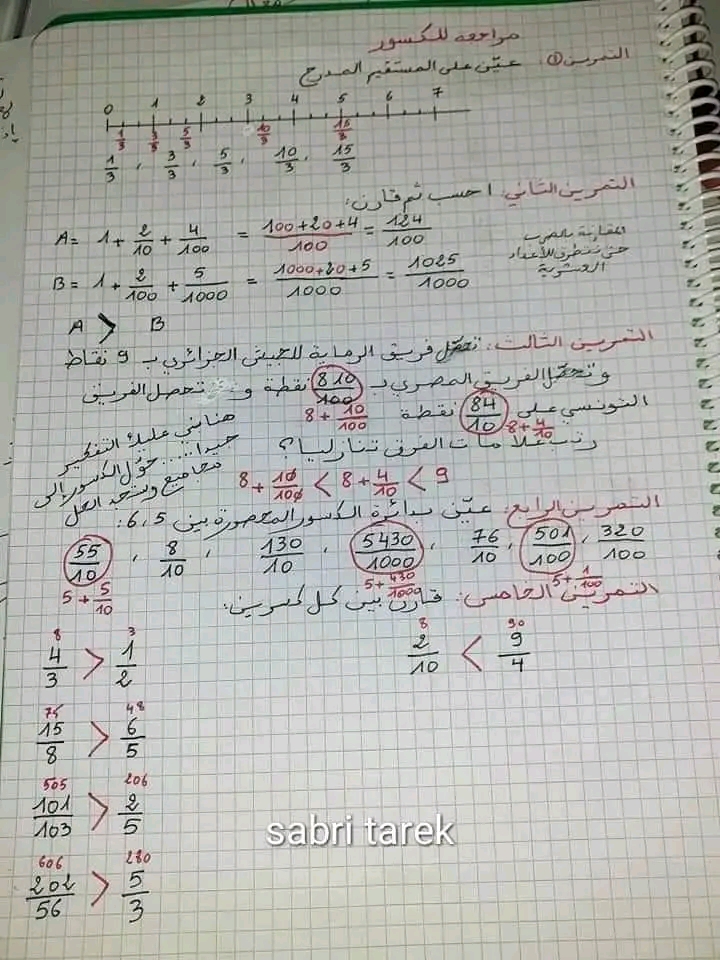 مراجعة للكسور
التمرين ①: عيّن على المستقيم المدرج
0 1 2 3 4 5 6 7
1/3 3/3 5/3 10/3 15/3
1/3 , 3/3 , 5/3 , 10/3 , 15/3
التمرين الثاني: احسب ثم قارن:
A = 1 + 2/10 + 4/100 = 100+20+4/100 = 124/100
المقارنة بالضرب
حتى نتطرق للأعداد
العشرية
B = 1 + 2/100 + 5/1000 = 1000+20+5/1000 = 1025/1000
A > B
التمرين الثالث: تحصّل فريق الرماية للجيش الجزائري بـ 9 نقاط
وتحصّل الفريق المصري بـ 810/100 نقطة و تحصل الفريق
8 + 10/100
التونسي على 84/10 نقطة
8 + 4/10
رتب علامات الفرق تنازليا؟
هنا بني عليك التفكير
جيدا... حوّل الكسور إلى
مجاميع وستجد الحل
8 + 10/100 < 8 + 4/10 < 9
التمرين الرابع: عيّن بدائرة الكسور المحصورة بين 5 ، 6:
55/10 , 8/10 , 130/10 , 5430/1000 , 76/10 , 501/100 , 320/100
5 + 5/10 5 + 430/1000 5 + 1/100
التمرين الخامس: قارن بين كل كسرين:
8 3
4/3 > 1/2
8 90
2/10 < 9/4
75 48
15/8 > 6/5
505 206
101/103 > 2/5
606 280
202/56 > 5/3
sabri tarek